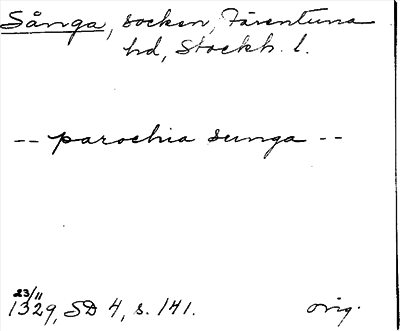 Sånga, socken, Färentuna
hd, Stockh. l.
-- parochia sunga --
23/11
1329, SD 4, s. 141. orig.